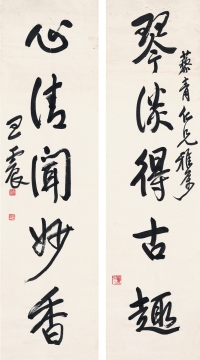 藜青仁兄雅属
琴淡得古趣
心清闻妙香
王震